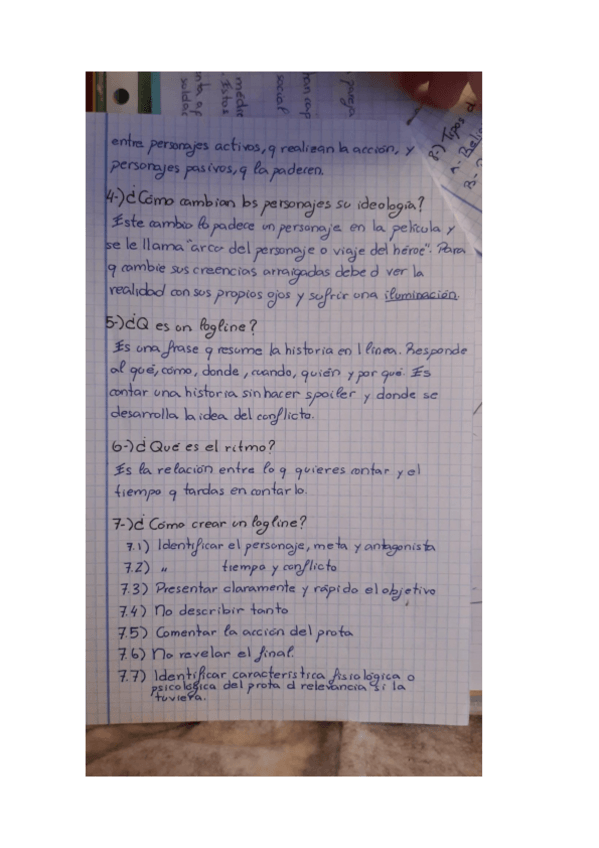 nta af
soldad
médic
. Estos
social
tan cap
pareja
8-) Tipos d
A- Relig
B-
entre personajes activos, q realizan la acción, y
personajes pasivos, q la padecen.
4-) ¿Cómo cambian los personajes su ideología?
Este cambio lo padece un personaje en la película y
se le llama "arco del personaje o viaje del héroe". Para
q cambie sus creencias arraigadas debe d ver la
realidad con sus propios ojos y sufrir una iluminación.
5-) ¿Q es un logline?
Es una frase q resume la historia en 1 línea. Responde
al qué, cómo, donde, cuando, quién y por qué. Es
contar una historia sin hacer spoiler y donde se
desarrolla la idea del conflicto.
6-) ¿Qué es el ritmo?
Es la relación entre lo q quieres contar y el
tiempo q tardas en contarlo.
7-) ¿Cómo crear un logline?
7.1) Identificar el personaje, meta y antagonista
7.2) " tiempo y conflicto
7.3) Presentar claramente y rápido el objetivo
7.4) No describir tanto
7.5) Comentar la acción del prota
7.6) No revelar el final.
7.7) Identificar característica fisiológica o
psicológica del prota d relevancia si la
tuviera.